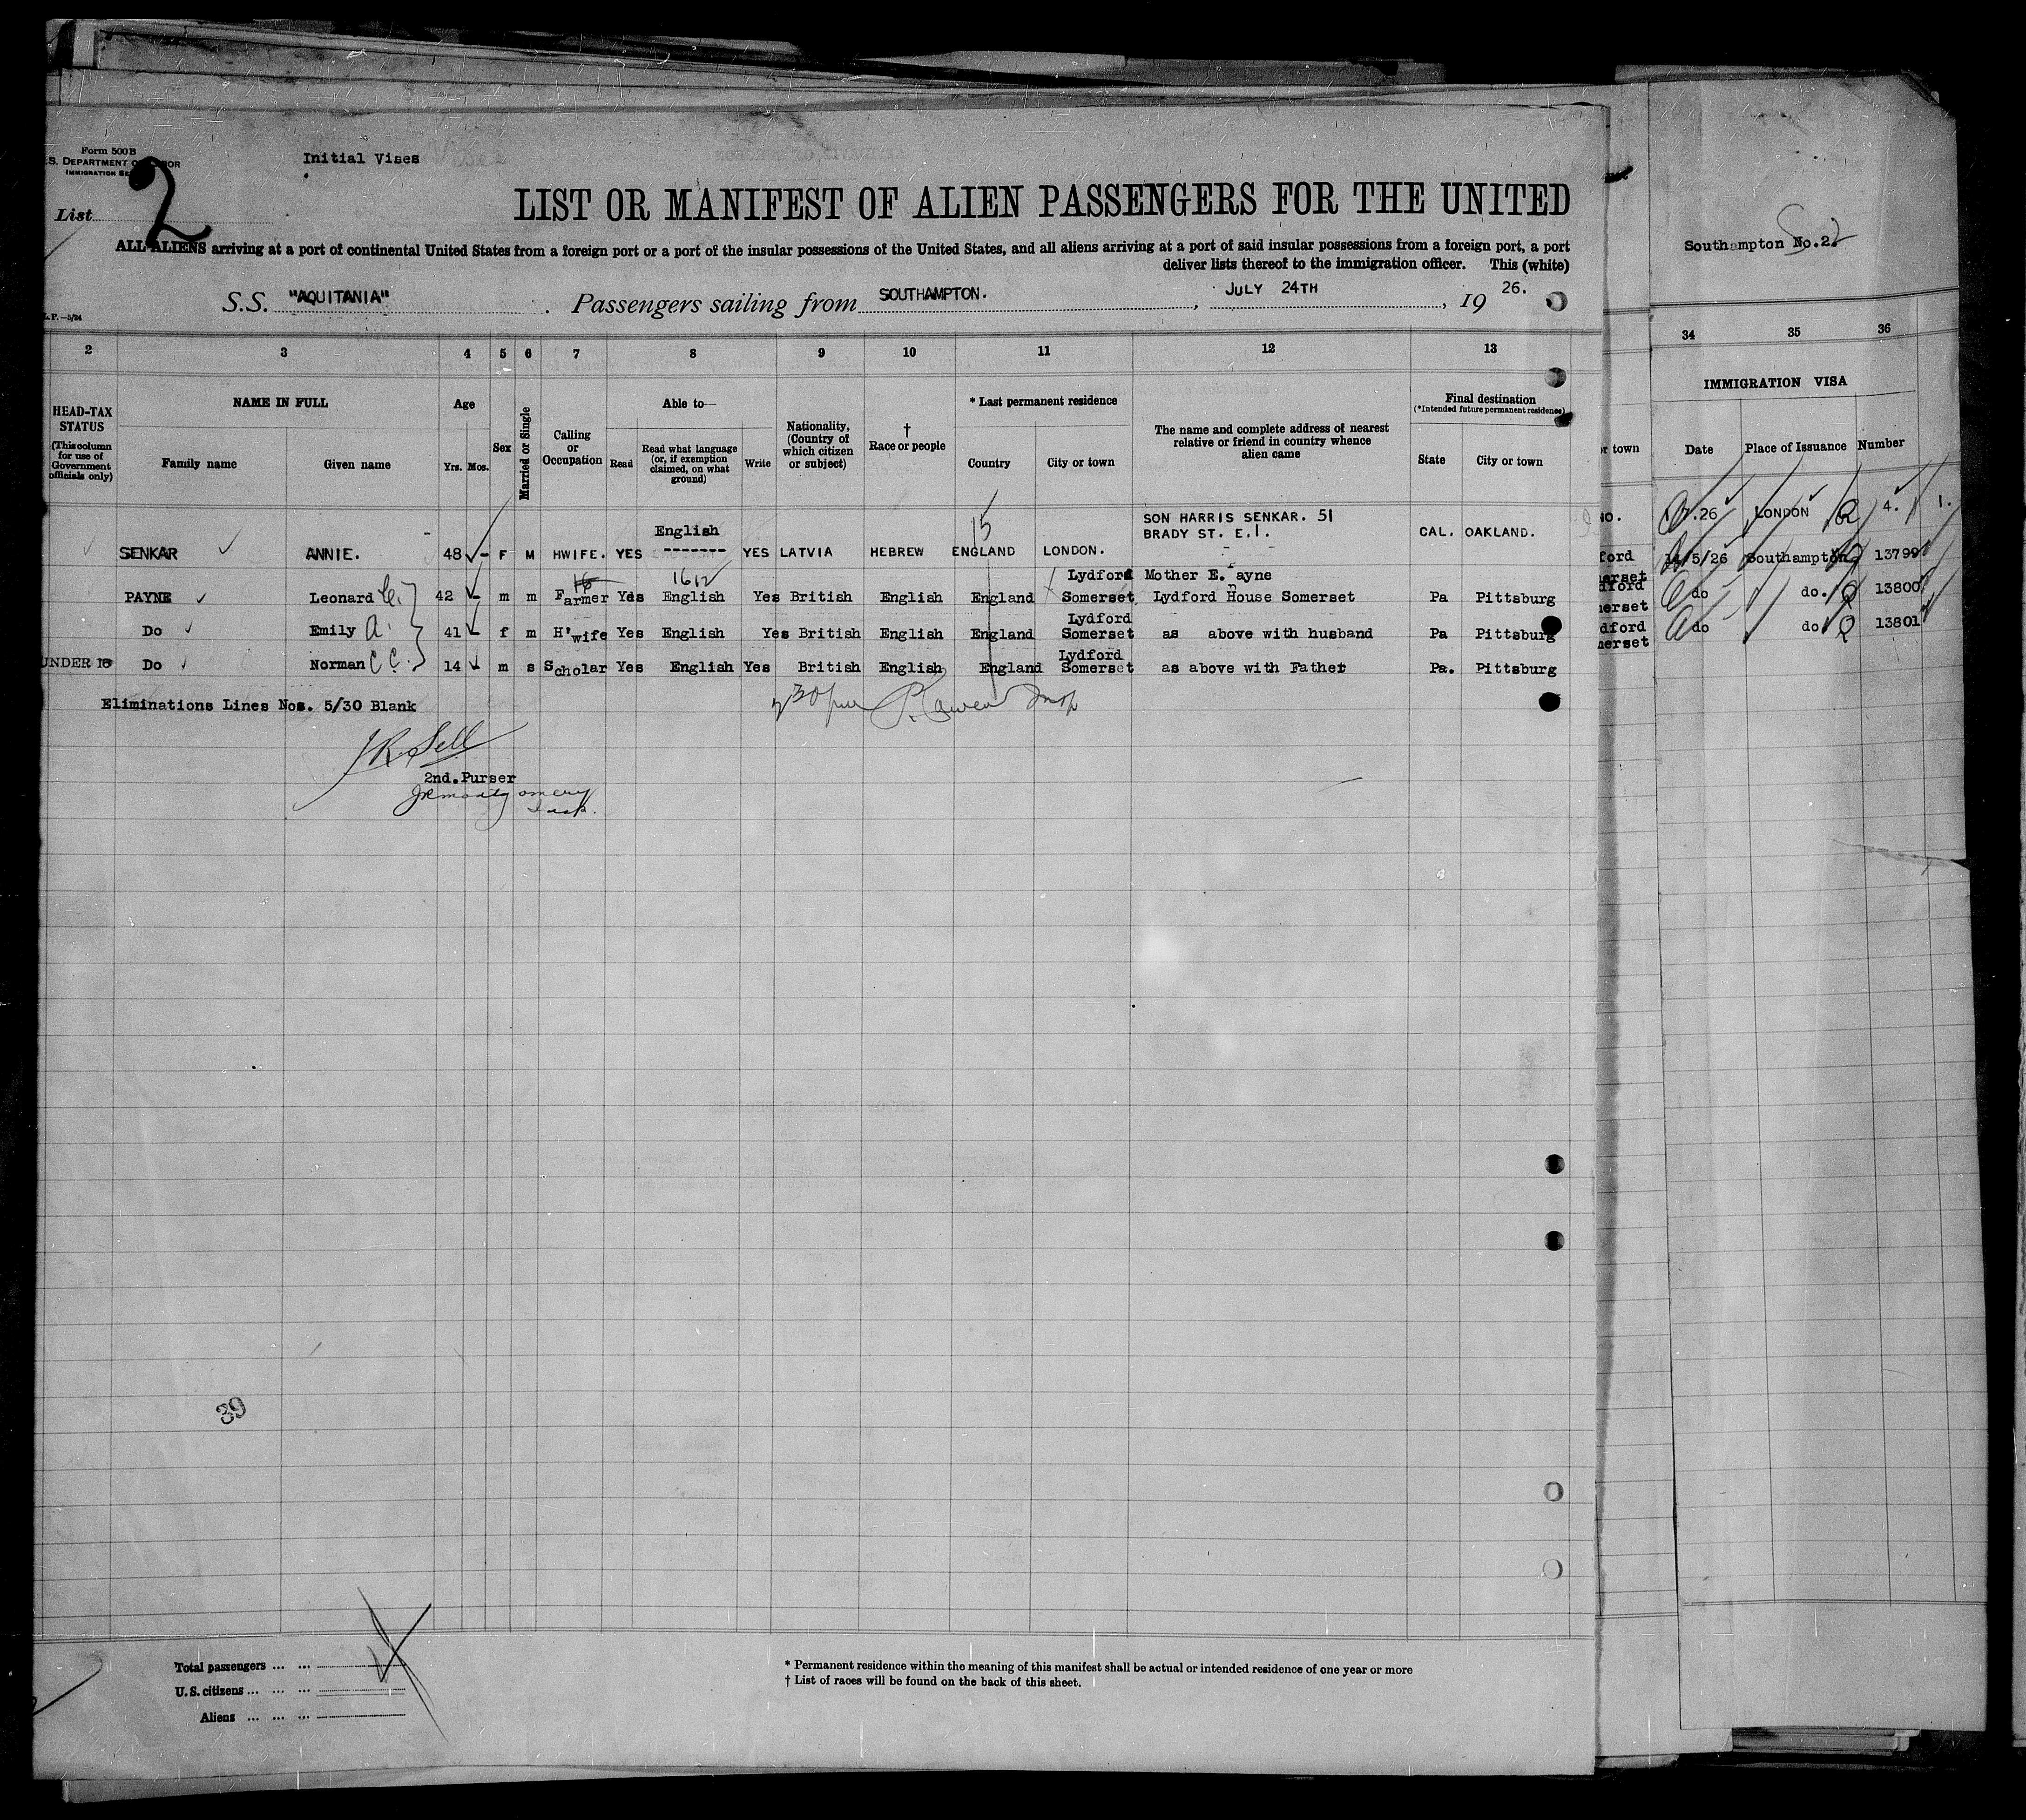 Form 500 B
S. DEPARTMENT OF LABOR
IMMIGRATION SE
Initial Vises
List 2
LIST OR MANIFEST OF ALIEN PASSENGERS FOR THE UNITED
ALL ALIENS arriving at a port of continental United States from a foreign port or a port of the insular possessions of the United States, and all aliens arriving at a port of said insular possessions from a foreign port, a port
deliver lists thereof to the immigration officer. This (white)
S.S. "AQUITANIA" . Passengers sailing from SOUTHAMPTON. , JULY 24TH , 19 26.
L.P.—5/24
2 3 4 5 6 7 8 9 10 11 12 13
HEAD-TAX STATUS (This column for use of Government officials only)
NAME IN FULL
Family name Given name
Age
Yrs. Mos.
Sex
Married or Single
Calling or Occupation
Able to—
Read
Read what language (or, if exemption claimed, on what ground)
Write
Nationality, (Country of which citizen or subject)
† Race or people
* Last permanent residence
Country City or town
The name and complete address of nearest relative or friend in country whence alien came
Final destination
(*Intended future permanent residence)
State City or town
English 15 SON HARRIS SENKAR. 51
BRADY ST. E.1. CAL. OAKLAND.
SENKAR ANNIE. 48 F M HWIFE. YES ------- YES LATVIA HEBREW ENGLAND LONDON.
16 1612 Lydford Mother E. ayne
P
PAYNE Leonard C. 42 m m Farmer Yes English Yes British English England Somerset Lydford House Somerset Pa Pittsburg
Lydford
Do Emily A. 41 f m H'wife Yes English Yes British English England Somerset as above with husband Pa Pittsburg
Lydford
UNDER 16 Do Norman C C. 14 m s Scholar Yes English Yes British English England Somerset as above with Father Pa. Pittsburg
Eliminations Lines Nos. 5/30 Blank
230 pm Insp
JR Sell
2nd. Purser
JR Montgomery
Insp.
39
Total passengers ... ...
U. S. citizens ... ... ...
Aliens ... ... ...
* Permanent residence within the meaning of this manifest shall be actual or intended residence of one year or more
† List of races will be found on the back of this sheet.
Southampton No.2. S 2
34 35 36
IMMIGRATION VISA
r town Date Place of Issuance Number
NO. .26 LONDON 4. 1.
ford 5/26 Southampton 13799
merset
dford do do. 13800
merset
dford do do 13801
merset